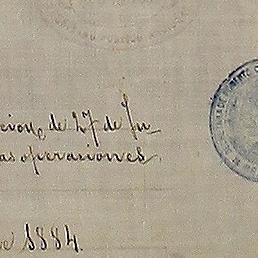 cion, de 27 de Ju_
as operaciones
e 1884.